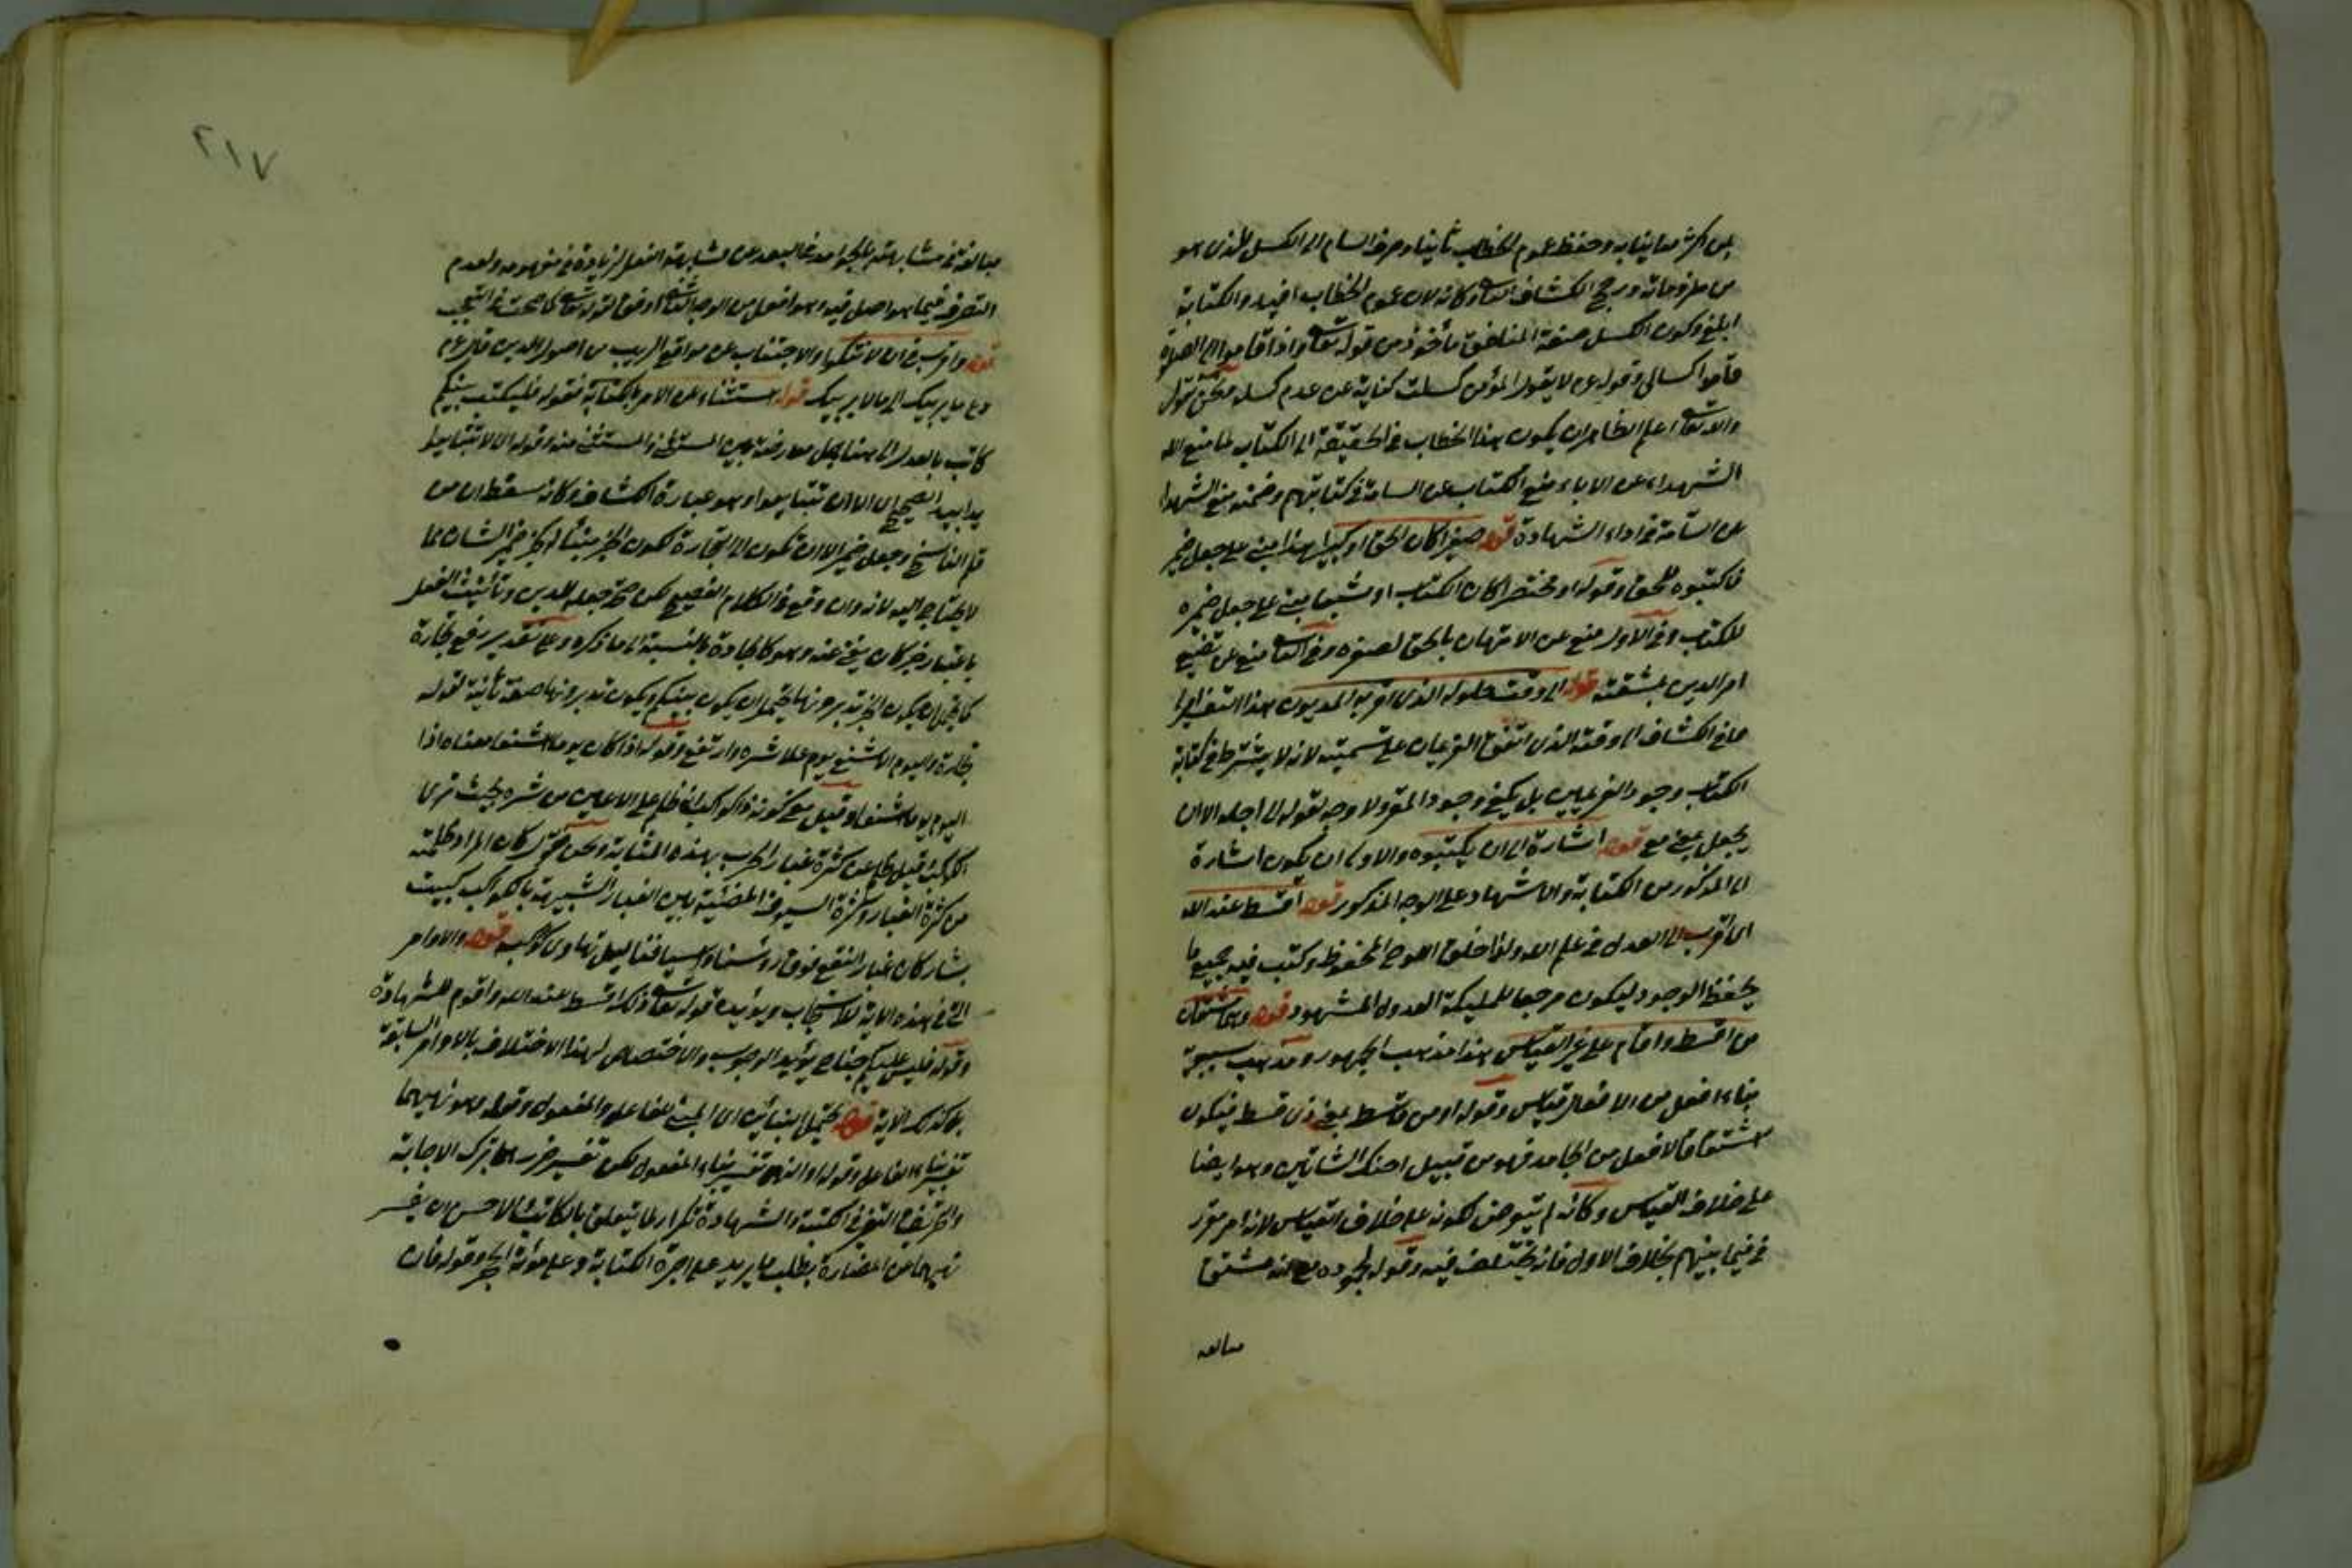 من كثر معاينات وحفظ عموم الخطاب ثانيا وصرف السام الى الكسل الذى هو
من ملزوماته ورجح الكشاف الثانى وكانه لان عموم الخطاب افيد والكناية
ابلغ وكون الكسل صفة المنافق مأخوذ من قوله تعالى واذا قاموا الى الصلوة
قاموا كسالى وقوله عن لا يقول المؤمن كسلت كناية عن عدم كسله
والله تعالى اعلم الظاهر ان يكون هذا الخطاب فى الحقيقة الى الكتاب لما منع الله
الشهداء عن الاباء منع الكتاب عن السامة فى كتابتهم وضمنه منع الشهداء
عن السآمة فى اداء الشهادة قوله صغيرا كان الحق او كبيرا هذا مبنى على جعل ضمير
فاكتبوه للحق وقوله او مختصرا كان الكتاب او مشبعا مبنى على جعل ضميره
للكتاب وفى الاول منع عن الامتهان بالحق لصغره وفى الثانى منع عن تضييع
امر الدين لمشقته قوله الى وقت حلوله الذى اقر به المديون هذا التفسير
ما فى الكشاف الى وقته الذى اتفق الغريمان على تسميته لانه لا يشترط فى كتابة
الكتاب وجود الغريمين بل يكفى وجود المقر ولا وجه لقوله الى اجله الا ان
يجعل بمعنى مع قوله اشارة الى ان يكتبوه والاولى ان يكون اشارة
الى المذكور من الكتابة والاشهاد على الوجه المذكور قوله اقسط عند الله
اى اقرب الى العدل فى علم الله ولذا خلق اللوح المحفوظ وكتب فيه جميع ما
يحفظ الوجود ليكون مرجعا للمليكة العدول الشهود قوله وهما مبنيان
من اقسط واقام على غير القياس هذا مذهب الجمهور ومذهب سيبويه
بناء افعل من الافعال قياس وقوله او من قاسط بمعنى ذى قسط فيكون
اشتقاقا لافعل من الجامد فهو من قبيل احنك الشاتين وهو ايضا
على خلاف القياس وكانه لم يتعرض لكونه على خلاف القياس لانه امر مقرر
فى فيما بينهم بخلاف الاول فانه يختلف فيه وقوله لجموده مع انه مشتق
مبالغه
٢١٧
مبالغة فى مشابهته بالجوامد فى البعد عن مشابهة الفعل لزيادة فى مفهومه ولعدم
التصرف فيما هو اصل فيه وهو افعل من الوجه الثانى اوفق لقوله كما صحت فى التعجب
قوله واقرب فى ان لا تشكوا والاجتناب عن مواقع الريب من اصول الدين قال عم
دع ما يريبك الى ما لا يريبك قوله استثناء عن الامر بالكتابة فقوله فليكتب بينكم
كاتب بالعدل الى هنا جمل معترضة بين المستثنى والمستثنى منه وقوله الا ان تتبايعوا
يدا بيد الصحيح الا ان تتبايعوا وهو عبارة الكشاف وكانه سقط ان من
قلم الناسخ وجعل ضمير الا ان تكون الى التجارة لكون الخبر مؤنثا ضمير الشان مما
لا يحتاج اليه لانه وان وقع فى الكلام الفصيح لكن صح جعله للدين وتأنيث الفعل
باعتبار خبر كان يغنى عنه وهو كالجادة بالنسبة الى ما ذكره وعلى تقدير رفع تجارة
كما يحتمل ان يكون الخبر تديرونها يحتمل ان يكون بينكم ويكون تديرونها صفة ثانية لقوله
تجارة واليوم الاشنع يوم علا شره وارتفع وقوله اذا كان يوما اشنعا معناه اذا
اليوم يوما اشنعا وقيل مع كونه ذا كواكب انه ظلم على الاعين من شره بحيث ترى
الكواكب قيل كناية عن كثرة غبار الحرب بهذه المثابة ونحن نقول كان المراد ظلمته
من كثرة الغبار وكثرة السيوف المضئية بين الغبار الشبيهة بالكواكب كبيت
بشار كان غبار النقع فوق رؤسنا واسيافنا ليل تهاوى كواكبه قوله والاوامر
التى فى هذه الاية للاستحباب ويؤيده قوله تعالى ذلكم اقسط عند الله واقوم للشهادة
وقوله فليس عليكم جناح يؤيد الوجوب والاختصاص لهذا الاختلاف بالاوامر السابقة
بل كذلك الاية قوله يحتمل البنائين اى المبنى للفاعل والمفعول وقوله وهو نهيهما
تفسير بناء الفاعل وقوله او النهى تفسير بناء المفعول لكن تفسير ضررهما بترك الاجابة
والتحريف والتغيير فى الكتبة والشهادة تكرار لما يتعلق بالكاتب الاحسن ان يفسر
نهيهما عن المضارة بطلب ما يزيد على اجرة الكتابة وعلى مؤنة وقوله فان